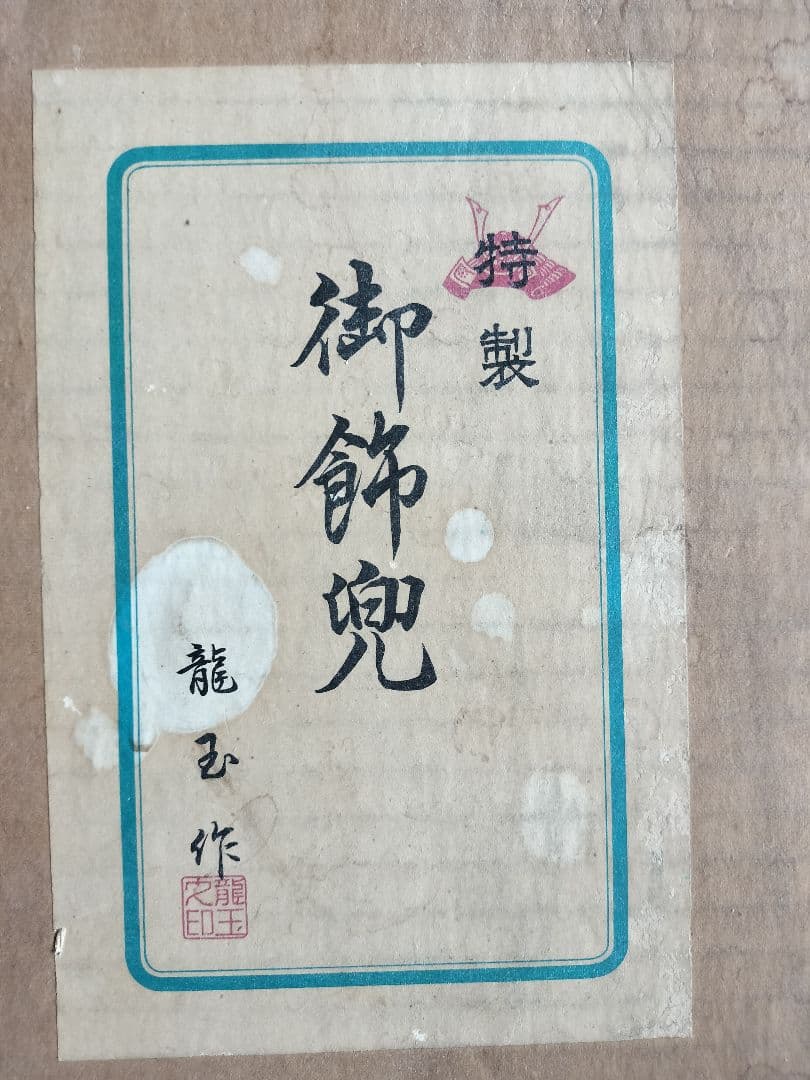 特製
御飾兜
龍玉作
龍玉
之印